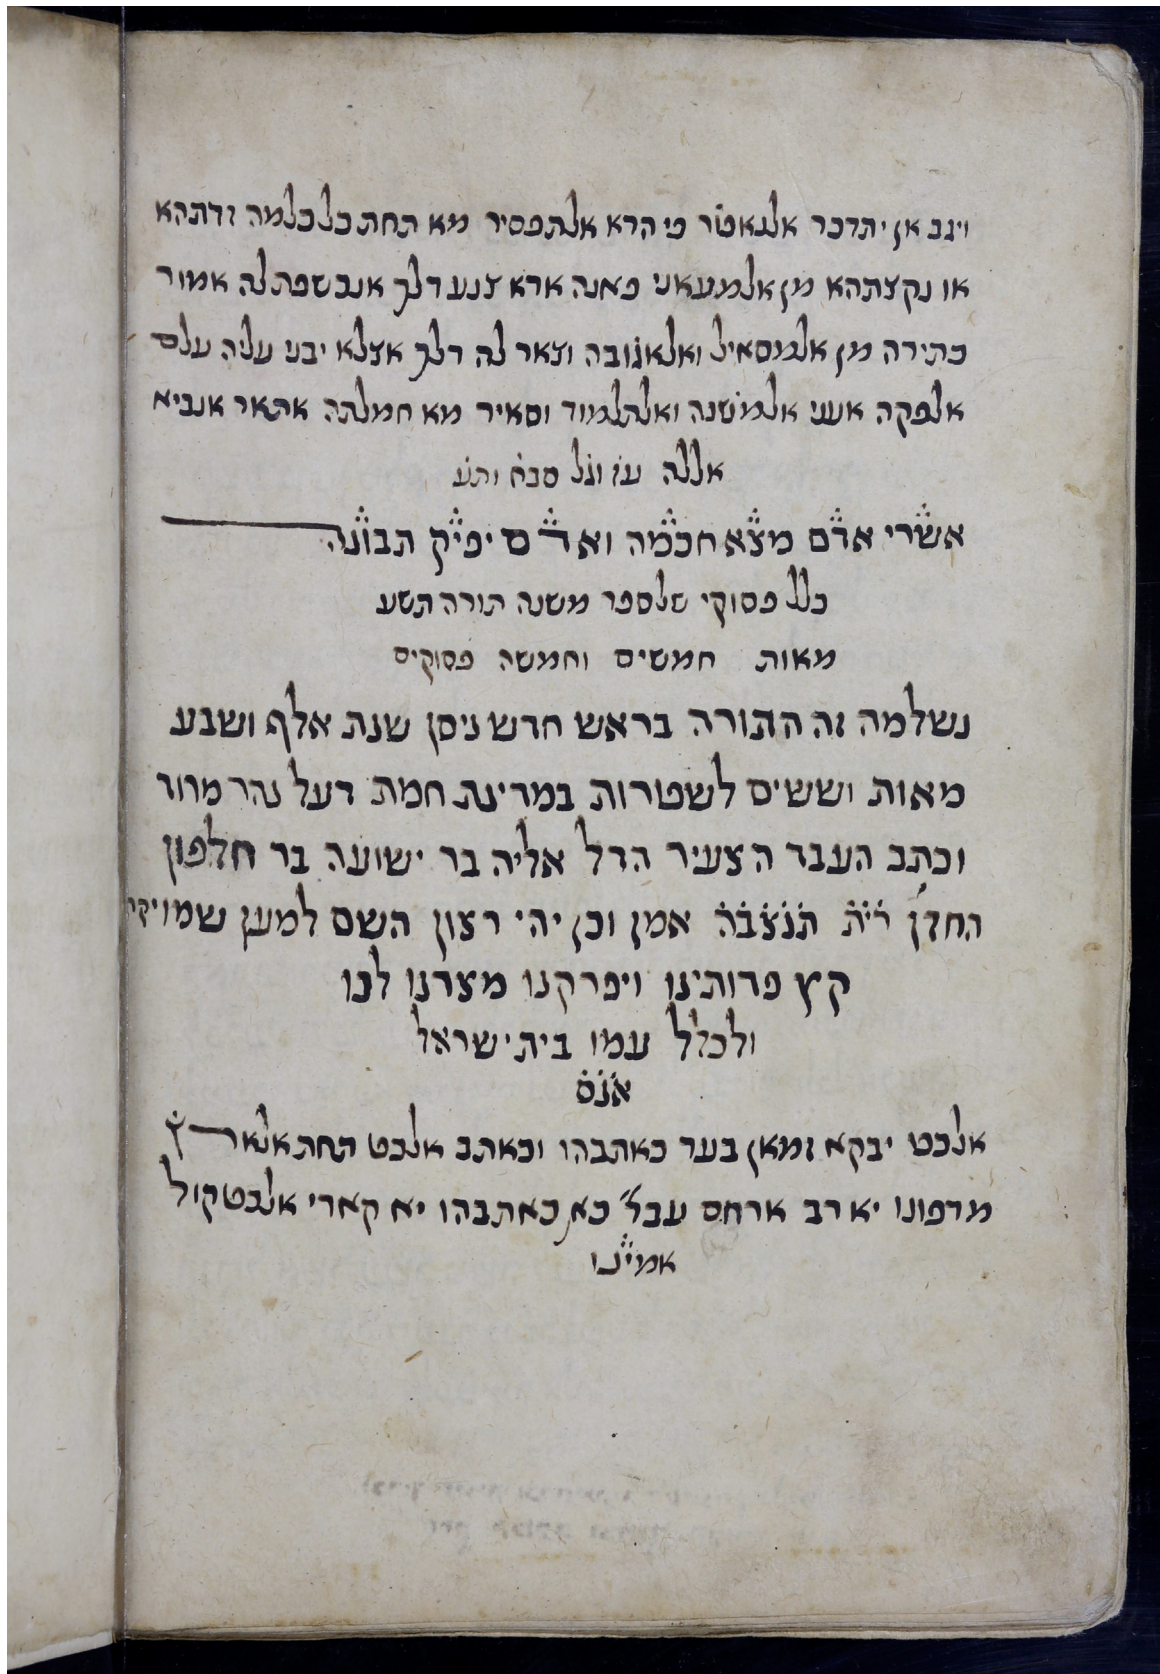 ויגב אן יתדבר אלנאטׄר פי הדא אלתפסיר מא תחת כל כלמה זדתהא
או נקצתהא מן אלמעאני פאנה אדא צנע דלך אנכשפת לה אמור
כתירה מן אלמסאיל ואלאגׄובה וצאר לה דלך אצלא יבני עליה עלם
אלפקה אעני אלמשנה ואלתלמוד וסאיר מא חמלתה אתאר אנביא
אללה עז וגׄל סבח̇ ותע̇
אשרי אדם מצא חכמה ואדם יפיק תבונה
כלל פסוקי שלספר משנה תורה תשע
מאות חמשים וחמשה פסוקים
נשלמה זה התורה בראש חדש ניסן שנת אלף ושבע
מאות וששים לשטרות במדינת חמת דעל נהר מרוד
וכתב העבד הצעיר הדל אליה בר ישועה בר חלפון
החזן ר̇י̇ת̇ ת̇נ̇צ̇ב̇ה̇ אמן וכן יהי רצון השם למען שמו יקי
קץ פדותינו ויפרקנו מצרנו לנו
ולכלל עמו בית ישראל
א̇נ̇ס̇
אלכט יבקא זמאן בעד כאתבהו וכאתב אלכט תחת אלארץ̇
מדפונו יא רב ארחם עבד כאן כאתבהו יא קארי אלכט קול
אמינו